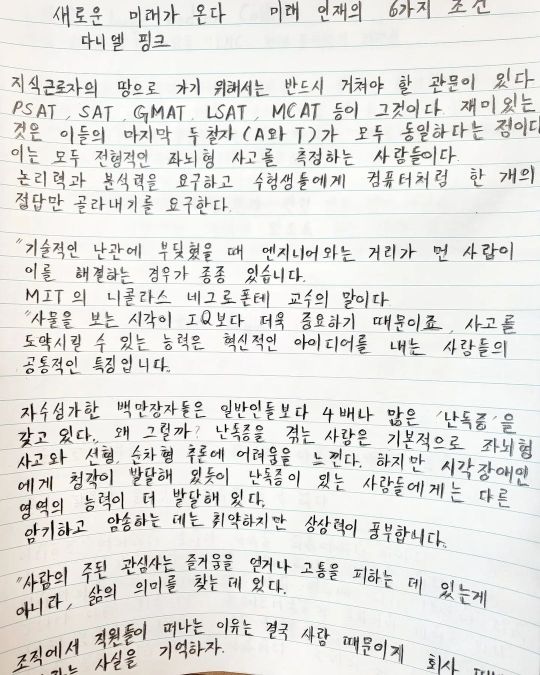 새로운 미래가 온다 미래 인재의 6가지 조건
다니엘 핑크
지식근로자의 땅으로 가기 위해서는 반드시 거쳐야 할 관문이 있다
PSAT, SAT, GMAT, LSAT, MCAT 등이 그것이다. 재미있는
것은 이들의 마지막 두 철자 (A와 T)가 모두 동일하다는 점이다
이는 모두 전형적인 좌뇌형 사고를 측정하는 사람들이다.
논리력과 분석력을 요구하고 수험생들에게 컴퓨터처럼 한 개의
정답만 골라내기를 요구한다.
"기술적인 난관에 부딪혔을 때 엔지니어와는 거리가 먼 사람이
이를 해결하는 경우가 종종 있습니다.
MIT의 니콜라스 네그로폰테 교수의 말이다
"사물을 보는 시각이 IQ보다 더욱 중요하기 때문이죠, 사고를
도약시킬 수 있는 능력은 혁신적인 아이디어를 내는 사람들의
공통적인 특징입니다.
자수성가한 백만장자들은 일반인들보다 4배나 많은 '난독증'을
갖고 있다. 왜 그럴까? 난독증을 겪는 사람은 기본적으로 좌뇌형
사고와 선형, 순차형 추론에 어려움을 느낀다. 하지만 시각장애인
에게 청각이 발달해 있듯이 난독증이 있는 사람들에게는 다른
영역의 능력이 더 발달해 있다.
암기하고 암송하는 데는 취약하지만 상상력이 풍부합니다.
"사람의 주된 관심사는 즐거움을 얻거나 고통을 피하는 데 있는게
아니라, 삶의 의미를 찾는 데 있다.
조직에서 직원들이 떠나는 이유는 결국 사람 때문이지 회사
사실을 기억하자.